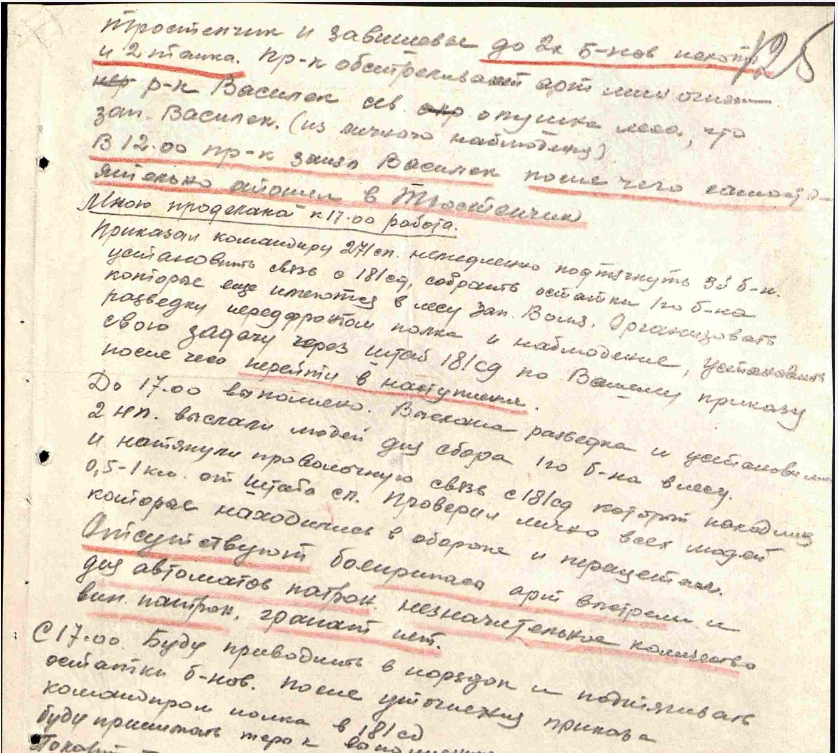 125
Тростенчик и зависловье до 2х б-нов пехоты
и 2 танка. Пр-к обстреливает арт мин огнем
р-к Василек сев опушка леса, что
зап. Василек. (из личного наблюдения)
В 12.00 пр-к занял Василек после чего самосто-
ятельно отошел в Тростенчик
Мною проделана к 17.00 работа.
Приказал командиру 271 сп. немедленно подтянуть 3й б-н.
установить связь с 181 сд, собрать остатки 1го б-на
которые еще имеются в лесу зап. Организовать
разведку перед фронтом полка и наблюдение, установить
свою задачу через штаб 181 сд по Вашему приказу
после чего перейти в наступление.
До 17.00 выполнено. Выслана разведка и установили
2 нп. выслали людей для сбора 1го б-на в лесу.
и натянули проволочную связь с 181 сд который находился
0,5-1 км. от штаба сп. Проверил лично всех людей
которые находились в обороне и
Отсутствуют боеприпасы арт выстрелы и
для автоматов патрон незначительное количество
вин. патрон, гранат нет.
С 17.00. Буду приводить в порядок и подтягивать
остатки б-нов. После уточнения приказа
командиром полка в 181 сд
буду принимать меры к